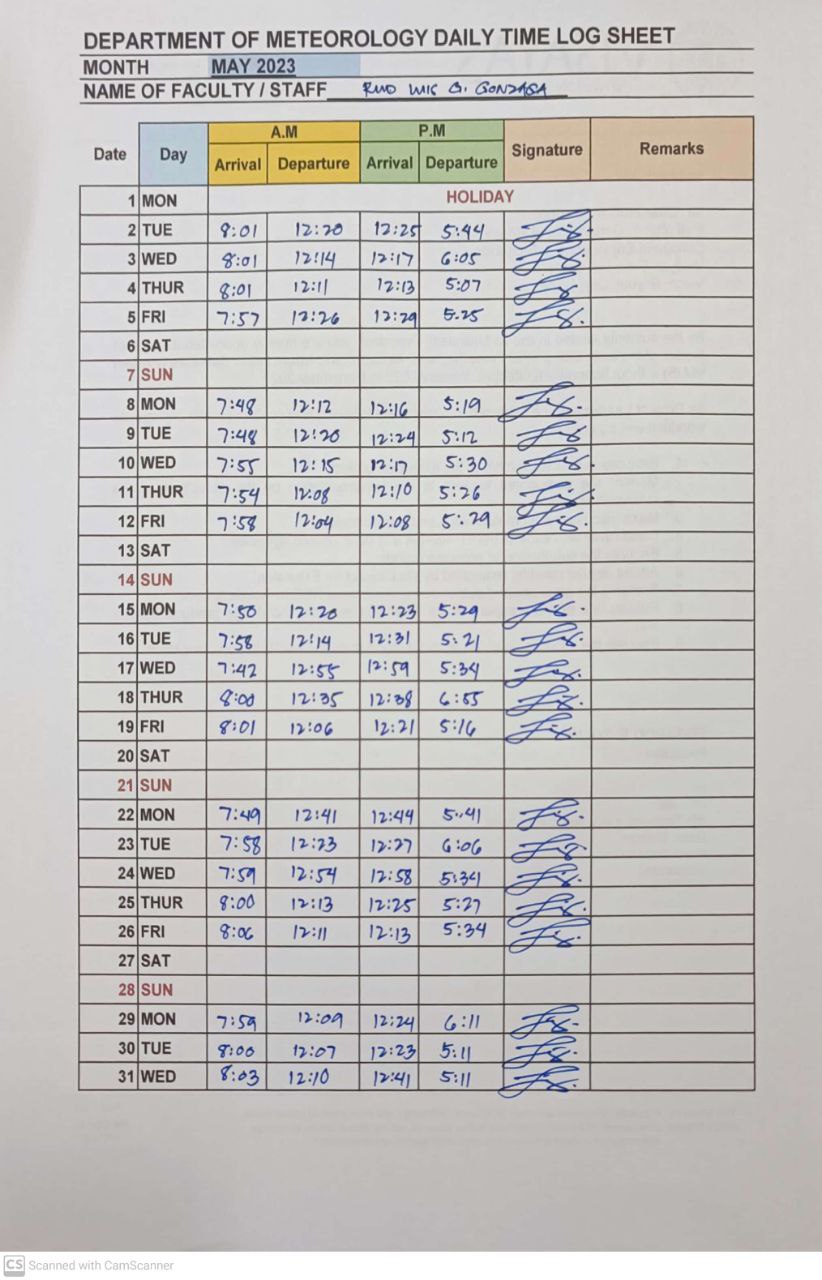 DEPARTMENT OF METEOROLOGY DAILY TIME LOG SHEET
MONTH MAY 2023
NAME OF FACULTY / STAFF G. GONZAGA
A.M P.M
Date Day Arrival Departure Arrival Departure Signature Remarks
1 MON HOLIDAY
2 TUE 8:01 12:20 12:25 5:44
3 WED 8:01 12:14 12:17 6:05
4 THUR 8:01 12:11 12:13 5:07
5 FRI 7:57 12:26 12:29 5:25
6 SAT
7 SUN
8 MON 7:48 12:12 12:16 5:19
9 TUE 7:48 12:20 12:24 5:12
10 WED 7:55 12:15 12:17 5:30
11 THUR 7:54 12:08 12:10 5:26
12 FRI 7:58 12:04 12:08 5:29
13 SAT
14 SUN
15 MON 7:50 12:20 12:23 5:29
16 TUE 7:58 12:14 12:31 5:21
17 WED 7:42 12:55 12:59 5:34
18 THUR 8:00 12:35 12:38 6:55
19 FRI 8:01 12:06 12:21 5:16
20 SAT
21 SUN
22 MON 7:49 12:41 12:44 5:41
23 TUE 7:58 12:23 12:27 6:06
24 WED 7:59 12:54 12:58 5:34
25 THUR 8:00 12:13 12:25 5:27
26 FRI 8:06 12:11 12:13 5:34
27 SAT
28 SUN
29 MON 7:59 12:09 12:24 6:11
30 TUE 8:00 12:07 12:23 5:11
31 WED 8:03 12:10 12:41 5:11
CS Scanned with CamScanner